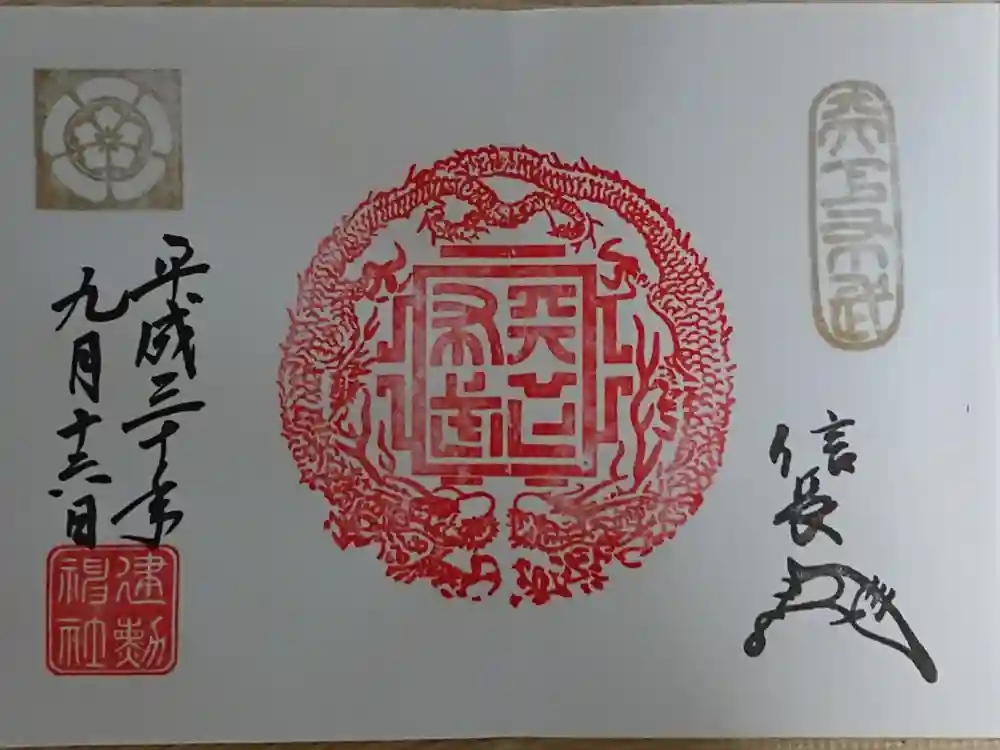 天下布武
信長
天下布武
平成三十年
九月十六日
建勲
神社